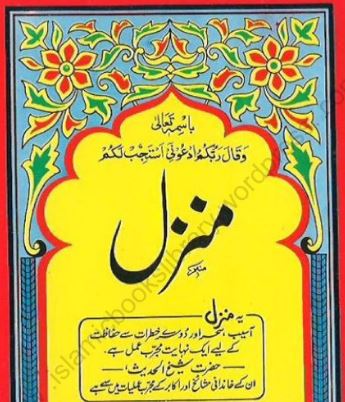 باسمہٖ تعالیٰ
وَقَالَ رَبُّكُمُ ادْعُوْنِیْٓ اَسْتَجِبْ لَكُمْ
منزل
یہ منزل
آسیب، سحر اور دُوسرے خطرات سے حفاظت
کے لیے ایک نہایت مجرّب عمل ہے۔
حضرت شیخ الحدیثؒ
ان کے خاندانی مشائخ اور اکابر کے مجرّب عملیات میں سے ہے
islamicbookslibrary.wordpress.com